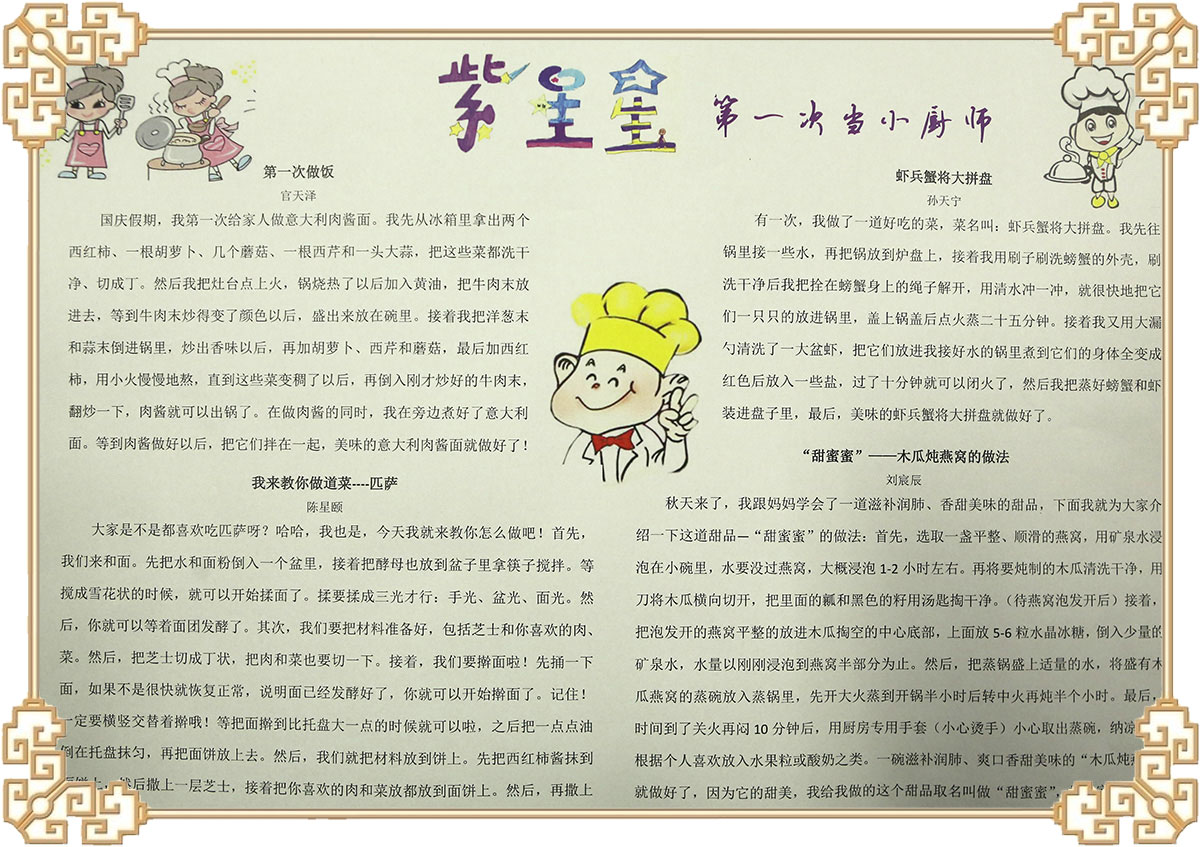 紫星星
第一次当小厨师
第一次做饭
官天泽
国庆假期，我第一次给家人做意大利肉酱面。我先从冰箱里拿出两个
西红柿、一根胡萝卜、几个蘑菇、一根西芹和一头大蒜，把这些菜都洗干
净、切成丁。然后我把灶台点上火，锅烧热了以后加入黄油，把牛肉末放
进去，等到牛肉末炒得变了颜色以后，盛出来放在碗里。接着我把洋葱末
和蒜末倒进锅里，炒出香味以后，再加胡萝卜、西芹和蘑菇，最后加西红
柿，用小火慢慢地熬，直到这些菜变稠了以后，再倒入刚才炒好的牛肉末，
翻炒一下，肉酱就可以出锅了。在做肉酱的同时，我在旁边煮好了意大利
面。等到肉酱做好以后，把它们拌在一起，美味的意大利肉酱面就做好了！
我来教你做道菜----匹萨
陈星颐
大家是不是都喜欢吃匹萨呀？哈哈，我也是，今天我就来教你怎么做吧！首先，
我们来和面。先把水和面粉倒入一个盆里，接着把酵母也放到盆子里拿筷子搅拌。等
搅成雪花状的时候，就可以开始揉面了。揉要揉成三光才行：手光、盆光、面光。然
后，你就可以等着面团发酵了。其次，我们要把材料准备好，包括芝士和你喜欢的肉、
菜。然后，把芝士切成丁状，把肉和菜也要切一下。接着，我们要擀面啦！先捅一下
面，如果不是很快就恢复正常，说明面已经发酵好了，你就可以开始擀面了。记住！
一定要横竖交替着擀哦！等把面擀到比托盘大一点的时候就可以啦，之后把一点点油
倒在托盘抹匀，再把面饼放上去。然后，我们就把材料放到饼上。先把西红柿酱抹到
然后撒上一层芝士，接着把你喜欢的肉和菜放都放到面饼上。然后，再撒上
虾兵蟹将大拼盘
孙天宁
有一次，我做了一道好吃的菜，菜名叫：虾兵蟹将大拼盘。我先往
锅里接一些水，再把锅放到炉盘上，接着我用刷子刷洗螃蟹的外壳，刷
洗干净后我把拴在螃蟹身上的绳子解开，用清水冲一冲，就很快地把它
们一只只的放进锅里，盖上锅盖后点火蒸二十五分钟。接着我又用大漏
勺清洗了一大盆虾，把它们放进我接好水的锅里煮到它们的身体全变成
红色后放入一些盐，过了十分钟就可以闭火了，然后我把蒸好螃蟹和虾
装进盘子里，最后，美味的虾兵蟹将大拼盘就做好了。
“甜蜜蜜”——木瓜炖燕窝的做法
刘宸辰
秋天来了，我跟妈妈学会了一道滋补润肺、香甜美味的甜品，下面我就为大家介
绍一下这道甜品—“甜蜜蜜”的做法：首先，选取一盏平整、顺滑的燕窝，用矿泉水浸
泡在小碗里，水要没过燕窝，大概浸泡 1-2 小时左右。再将要炖制的木瓜清洗干净，用
刀将木瓜横向切开，把里面的瓤和黑色的籽用汤匙掏干净。（待燕窝泡发开后）接着，
把泡发开的燕窝平整的放进木瓜掏空的中心底部，上面放 5-6 粒水晶冰糖，倒入少量的
矿泉水，水量以刚刚浸泡到燕窝半部分为止。然后，把蒸锅盛上适量的水，将盛有木
瓜燕窝的蒸碗放入蒸锅里，先开大火蒸到开锅半小时后转中火再炖半个小时。最后，
时间到了关火再闷 10 分钟后，用厨房专用手套（小心烫手）小心取出蒸碗，纳凉
根据个人喜欢放入水果粒或酸奶之类。一碗滋补润肺、爽口香甜美味的“木瓜炖
就做好了，因为它的甜美，我给我做的这个甜品取名叫做“甜蜜蜜”